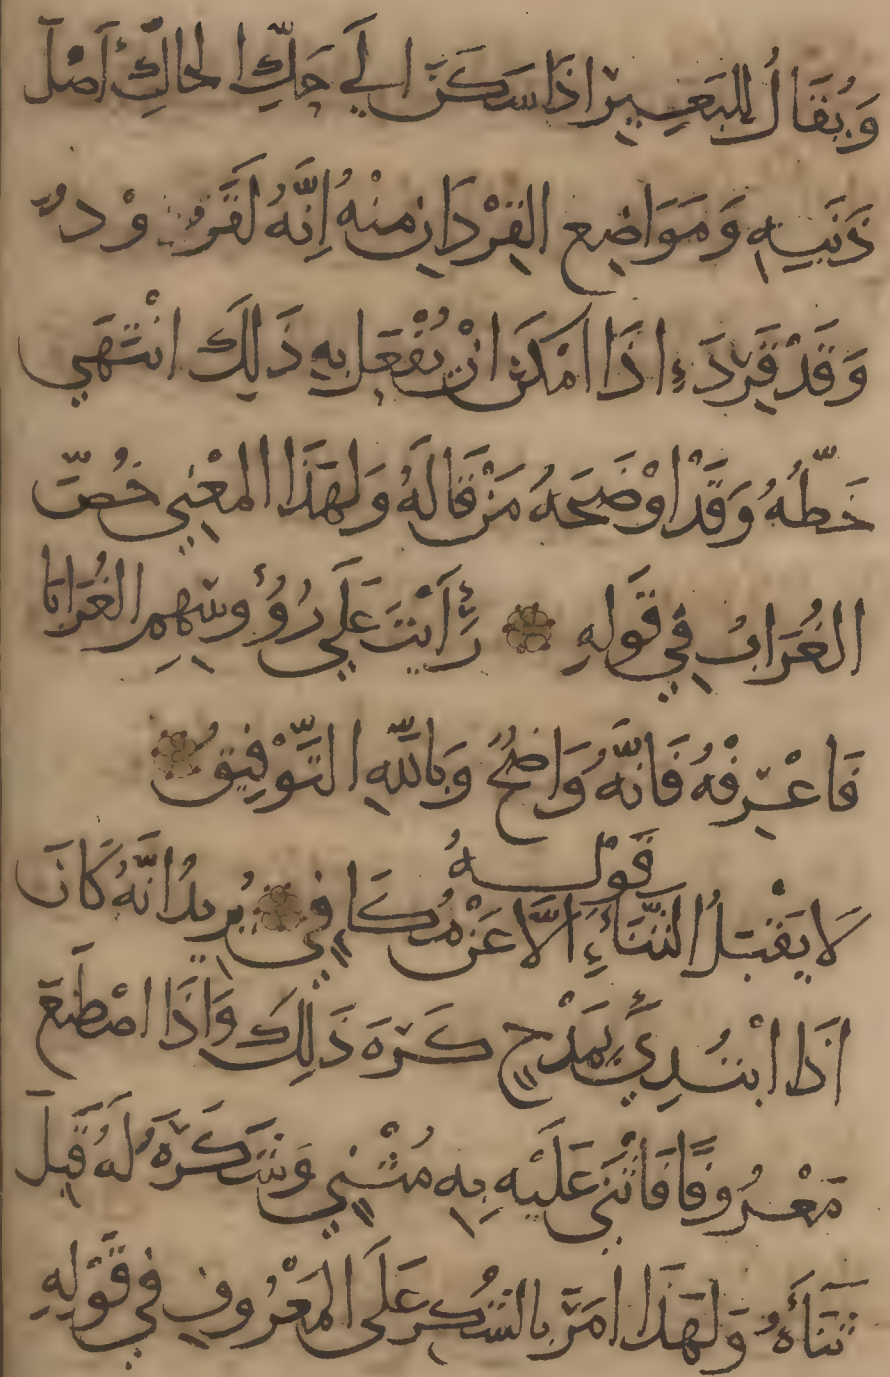 وَيُقَالُ لِلْبَعِيرِ اِذَا سَكَنَ اِلَي حَكِّ الحَاكِّ أَصْلَ
ذَنَبِهِ وَمَوَاضِعِ القِرْدَانِ مِنْهُ اِنَّهُ لَقَرُوْدٌ
وَقَدْ قَرِدَ اِذَا امْكَنَ انْ يُفْعَلَ بِهِ ذَلِكَ انْتَهَي
خَطُّهُ وَقَدْ اوْضَحَهُ مَنْ قَالَهُ وَلِهَذَا المَعْنِي خُصَّ
الغُرَابُ فِي قَوْلِهِ رَأَيْتَ عَلَي رُؤُوسِهِمِ الغُرَابَا
فَاعْرِفْهُ فَانَّهُ وَاضِحٌ وَبِاللَّهِ التَّوْفِيقُ
قَوْلُهُ
لَا يَقْبَلُ الثَّنَاءَ اِلَّا عَنْ مُكَافِيٍ يُرِيدُ انَّهُ كَانَ
اذَا ابْتُدِيَ بِمَدْحٍ كَرِهَ ذَلِكَ وَاذَا اصْطَنَعَ
مَعْرُوفًا فَاثْنَى عَلَيْهِ بِهِ مُثْنِيٍ وَشَكَرَهُ لَهُ قَبِلَ
ثَنَاءَهُ وَلِهَذَا امَرَ بِالشُّكْرِ عَلَى المَعْرُوفِ فِي قَوْلِهِ